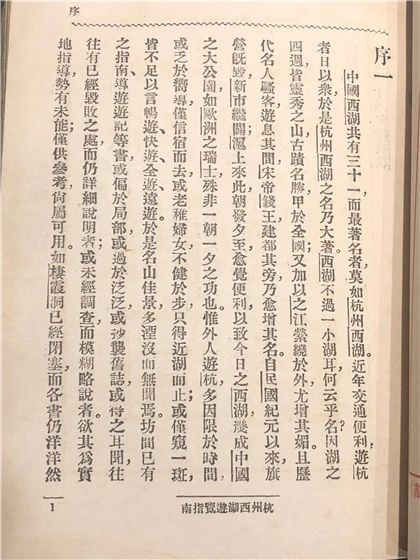 序
序一
中國西湖共有三十一而最著名者莫如杭州西湖。近年交通便利，遊杭
者日以衆於是杭州西湖之名乃大著。西湖不過一小湖耳，何云乎？名因湖之
四週皆靈秀之山，古蹟名勝，甲於全國；又加以之江縈繞於外，尤增其媚。且歷
代名人騷客，遊息其間；宋帝錢王，建都其旁，乃愈增其名。自民國紀元以來，旗
營既毀，新市繼闢，滬上來此，朝發夕至，愈覺便利，以致今日之西湖，幾成中國
之大公園；如歐洲之瑞士，殊非一朝一夕之功也。惟外人遊杭，多因限於時間，
或乏於嚮導，僅信宿而去；或老稚婦女，不健於步，只得近湖而止；或僅窺一斑，
皆不足以言暢遊，快遊，全遊，遠遊。於是名山佳景，多湮沒而無聞焉。坊間已有
之指南，導遊，遊記等書，或偏於局部，或過於泛泛，或沙襲舊誌，或得之耳聞，往
往有已經毀敗之處，而仍詳細說明者；或未經調查，而模糊略說者。欲其爲實
地指導，勢有未能；僅供參考，尙屬可用。如棲霞洞已經閉塞，而各書仍洋洋然
杭州西湖遊覽指南
1